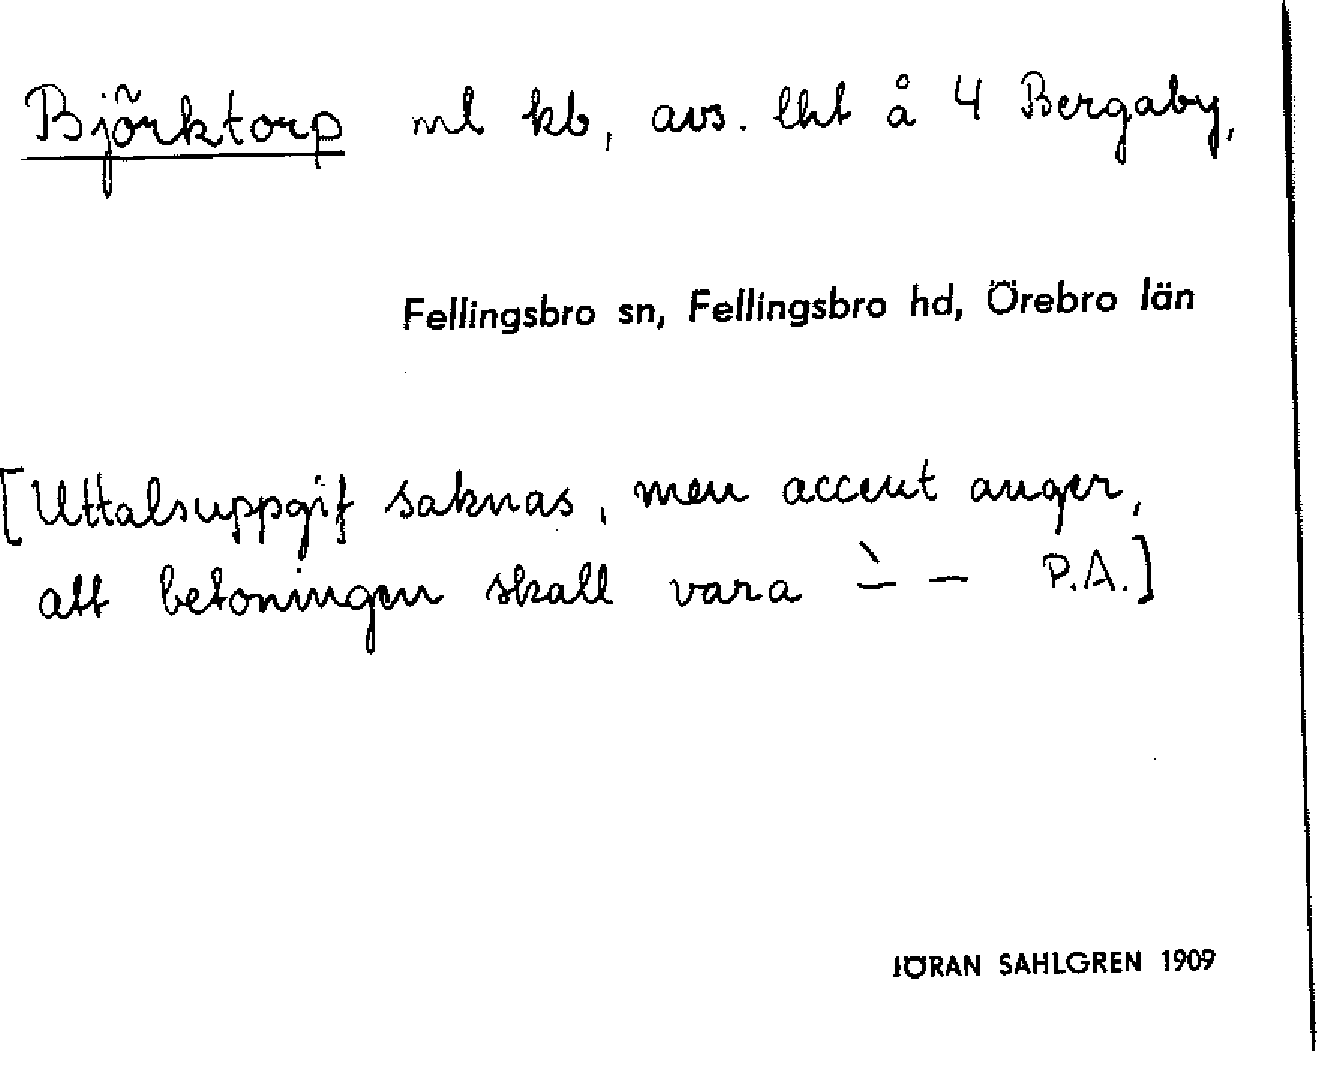 Björktorp ml kb, avs. lht å 4 Bergaby,
Fellingsbro sn, Fellingsbro hd, Örebro län
[Uttalsuppgift saknas, men accent anger,
att betoningen skall vara ˋ– – P.A.]
JÖRAN SAHLGREN 1909